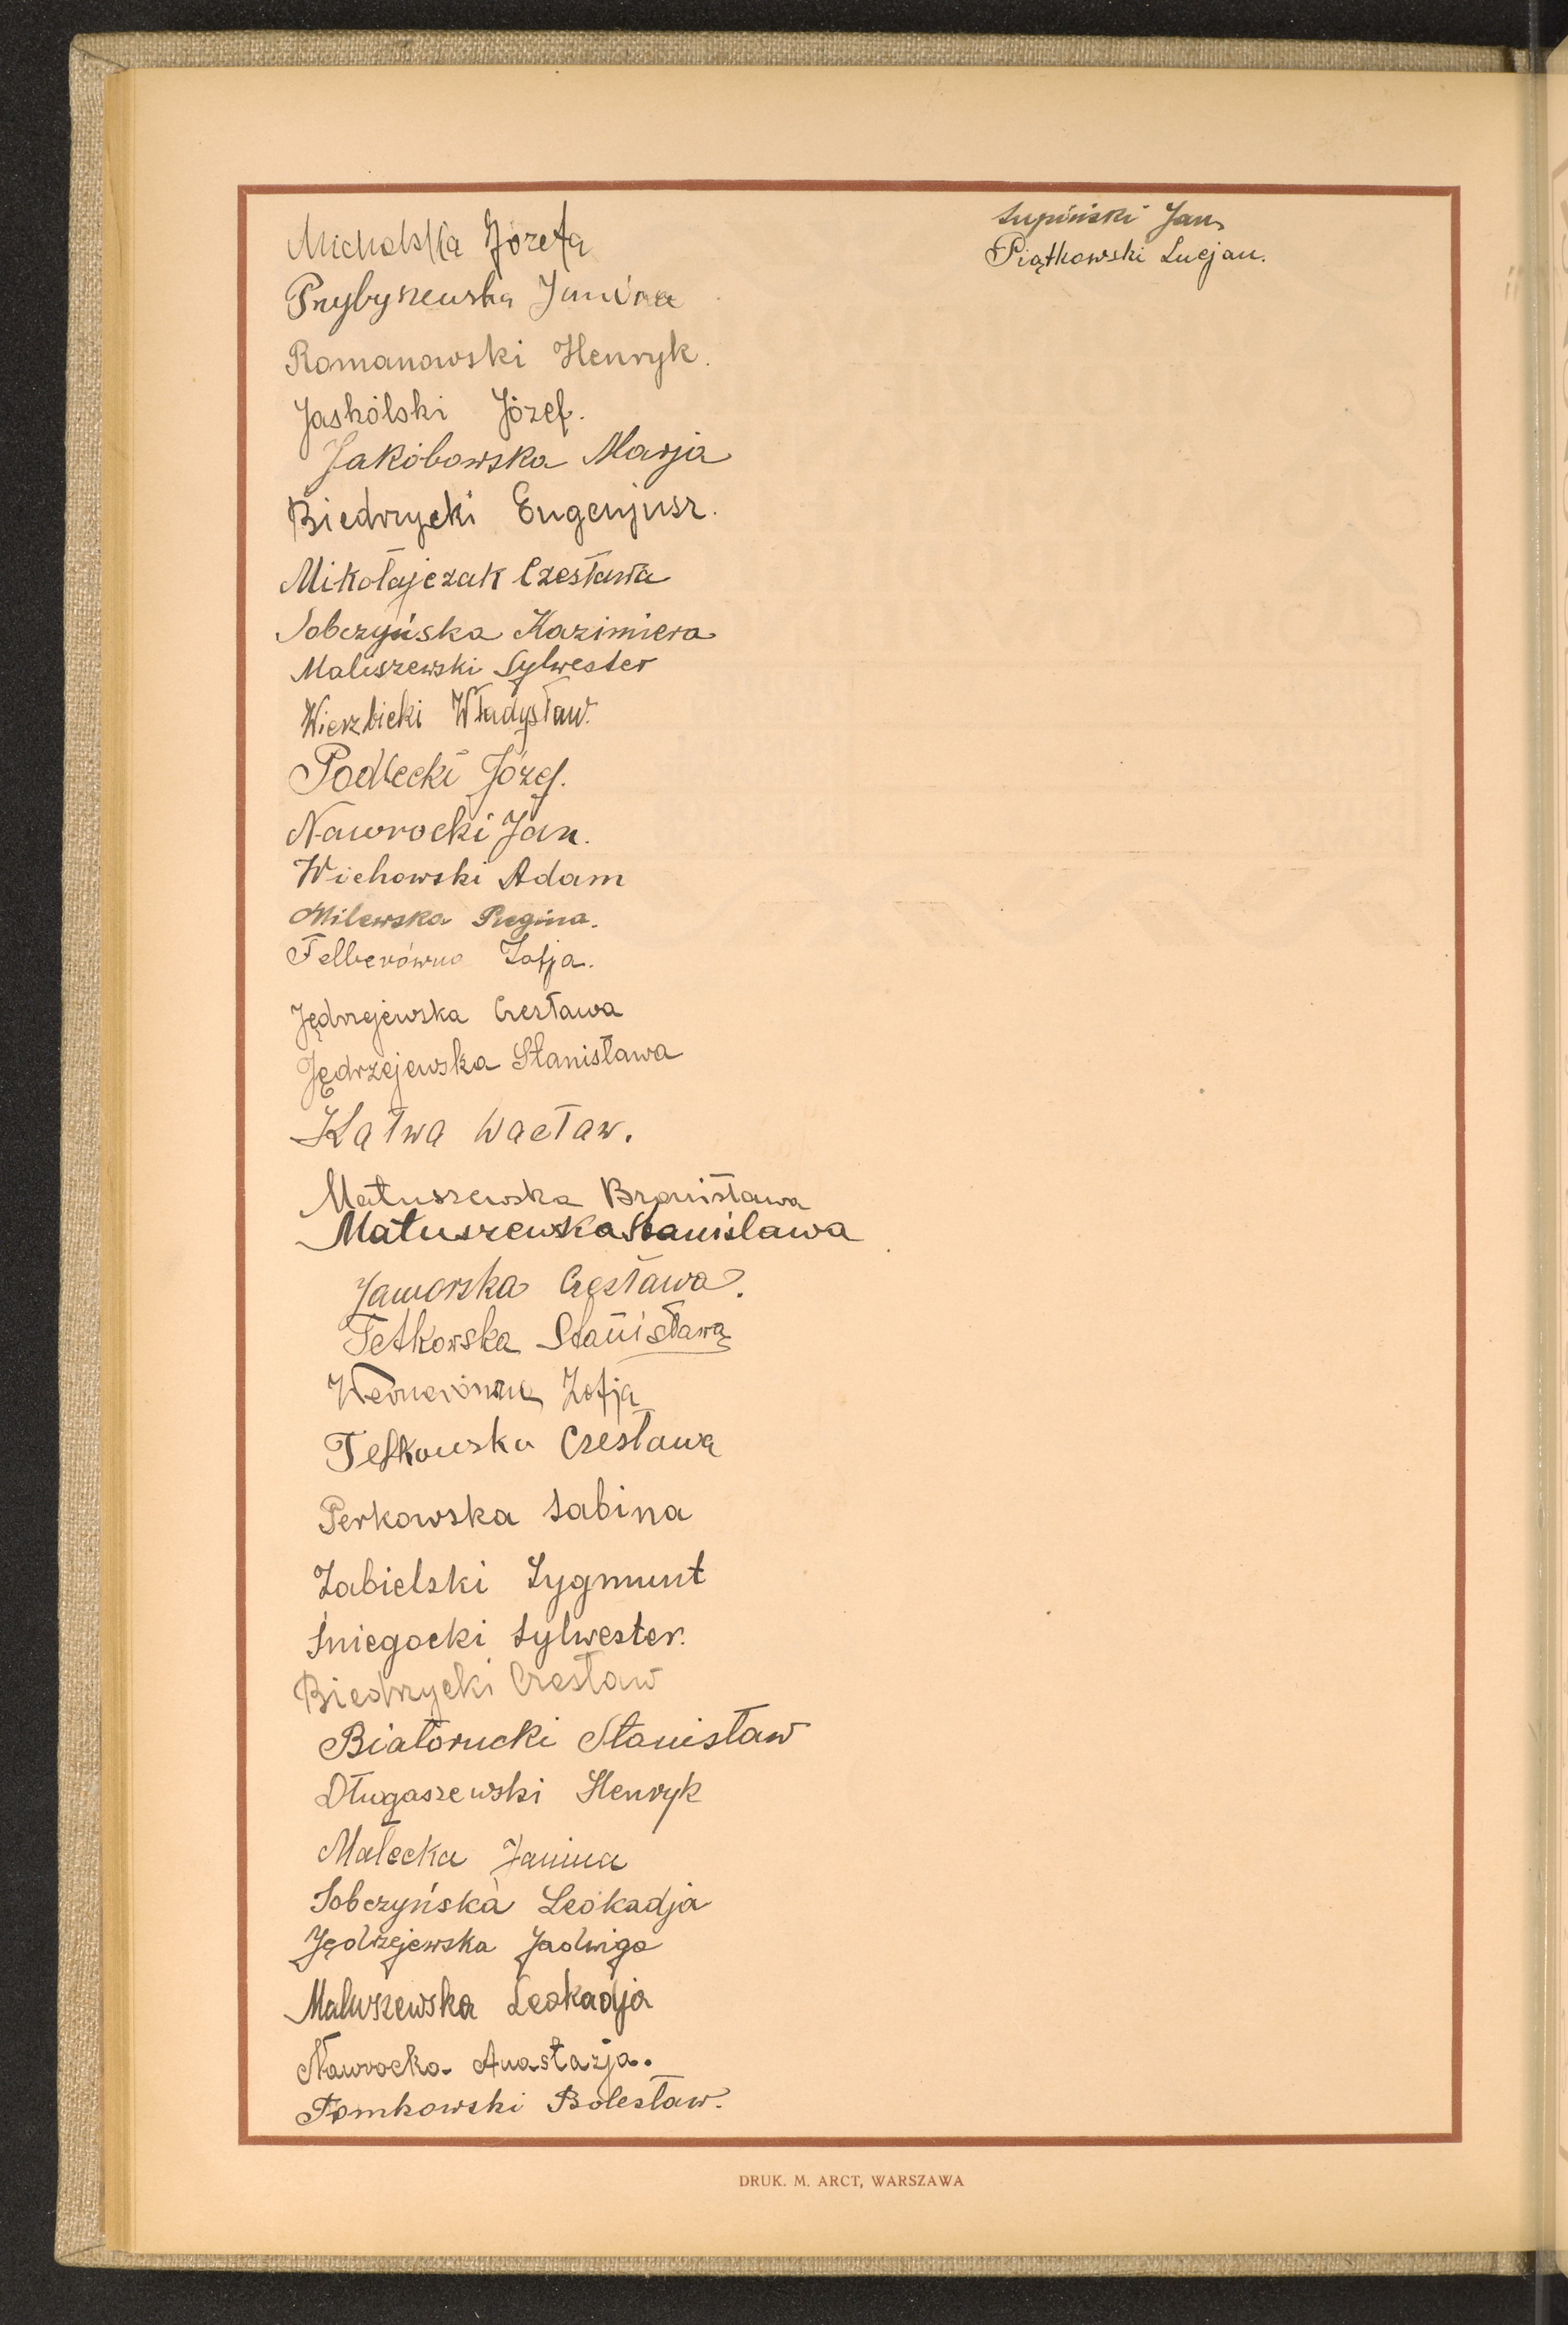 Michalska Józefa
Przybyszewska Janina
Romanowski Henryk.
Jaskólski Józef.
Jakóbowska Marja
Biedrzycki Eugenjusz.
Mikołajczak Czesława
Sobczyńska Kazimiera
Maliszewski Sylwester
Wierzbicki Władysław.
Podlecki Józef.
Nawrocki Jan.
Wichowski Adam
Milewska Regina.
Felberówna Zofja.
Jędrzejewska Czesława
Jędrzejewska Stanisława
Kałwa Wacław.
Matuszewska Bronisława
Matuszewska Stanisława
Jaworska Czesława.
Tetkowska Stanisława
Wernerówna Zofja
Tetkowska Czesława
Perkowska Sabina
Zabielski Zygmunt
Śniegocki Sylwester.
Biedrzycki Czesław
Białorucki Stanisław
Długaszewski Henryk
Małecka Janina
Sobczyńska Leokadja
Jędrzejewska Jadwiga
Maluszewska Leokadja
Nawrocka Anastazja.
Tomkowski Bolesław.
Łupiński Jan
Piątkowski Lucjan.
DRUK. M. ARCT, WARSZAWA